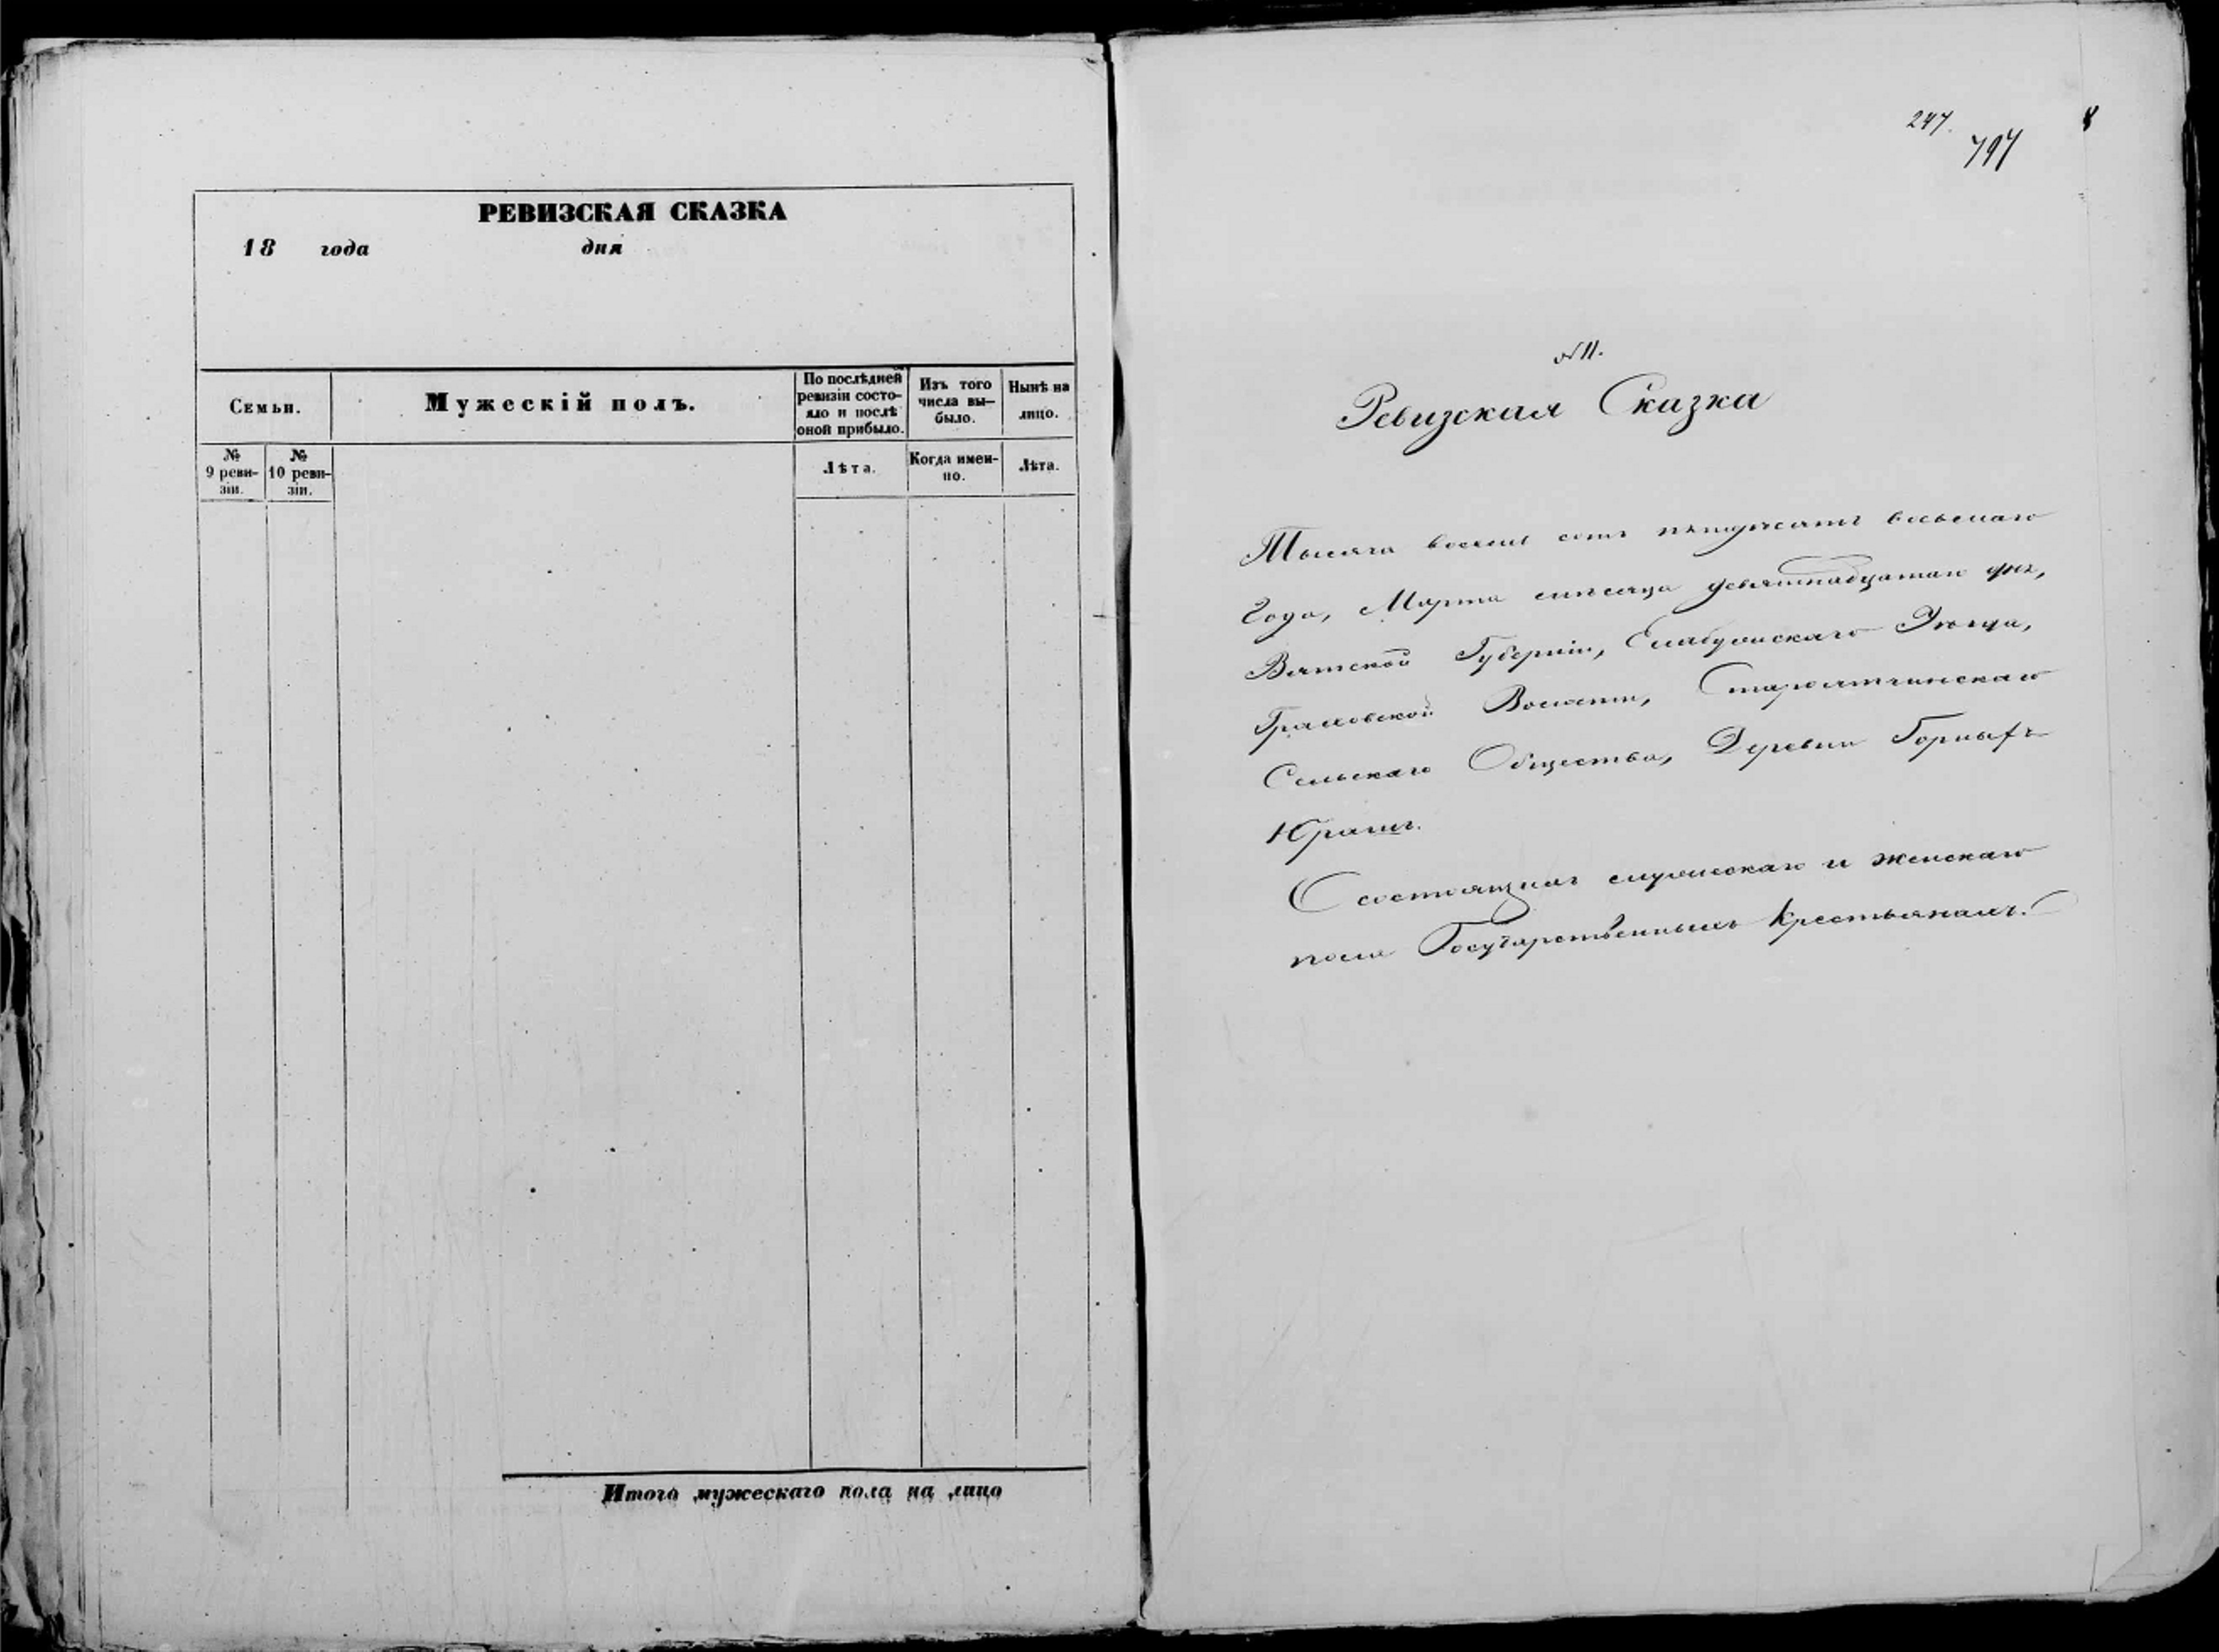 РЕВИЗСКАЯ СКАЗКА
18 года дня
Семьи.
Мужескій полъ.
По послѣдней
ревизіи состо-
яло и послѣ
оной прибыло.
Изъ того
числа вы-
было.
Нынѣ на
лицо.
№
9 реви-
зіи.
№
10 реви-
зіи.
Лѣта.
Когда имен-
но.
Лѣта.
Итого мужескаго пола на лицо
247.
797
№ 11.
Ревизская Сказка
Тысяча восемь сотъ пятдесятъ восьмаго
Года, Марта мѣсяца девятнадцатаго дня,
Вятской Губерніи, Елабужскаго Уѣзда,
Граховской Волости, Староятчинскаго
Сельскаго Общества, Деревни Горныхъ
Юрашъ.
О состоящихъ мужескаго и женскаго
пола Государственныхъ Крестьянахъ.